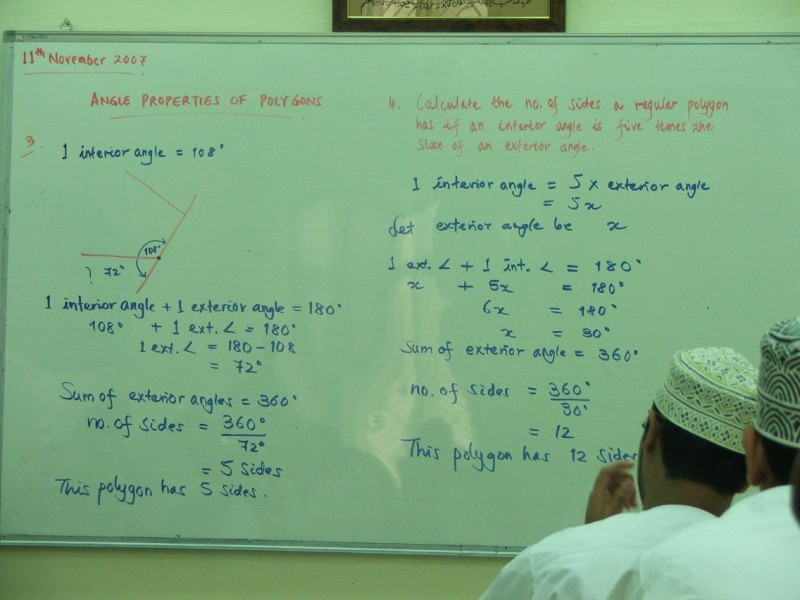 11th November 2007
ANGLE PROPERTIES OF POLYGONS
3.
1 interior angle = 108°
108°
? 72°
1 interior angle + 1 exterior angle = 180°
108° + 1 ext. ∠ = 180°
1 ext. ∠ = 180 - 108
= 72°
Sum of exterior angles = 360°
no. of sides = 360°
72°
= 5 sides
This polygon has 5 sides.
4. Calculate the no. of sides a regular polygon
has if an interior angle is five times the
size of an exterior angle.
1 interior angle = 5 x exterior angle
= 5x
Let exterior angle be x
1 ext. ∠ + 1 int. ∠ = 180°
x + 5x = 180°
6x = 180°
x = 30°
Sum of exterior angle = 360°
no. of sides = 360°
30°
= 12
This polygon has 12 sides